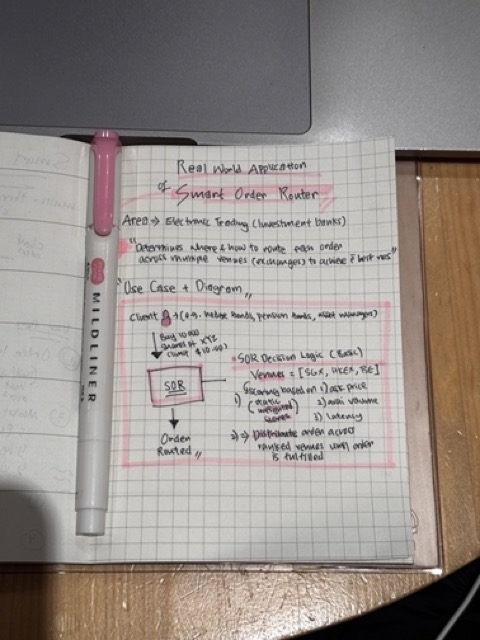 Real World Application
of Smart Order Router
Area → Electronic Trading (Investment banks)
"Determines where & how to route each order
across multiple venues (exchanges) to achieve best res"
"Use Case + Diagram"
Client (e.g. hedge funds, pension funds, asset managers)
Buy 10 000
shares of XYZ
Limit $10.
SOR
Order
Routed
SOR Decision Logic (Basic)
Venues = [SGX, HKEX,
1) Scoring based on 1) ask price
(static weighted scores) 2) avail volume
3) latency
2) → Distribute order across
ranked venues until order
is fulfilled
MILDLINER